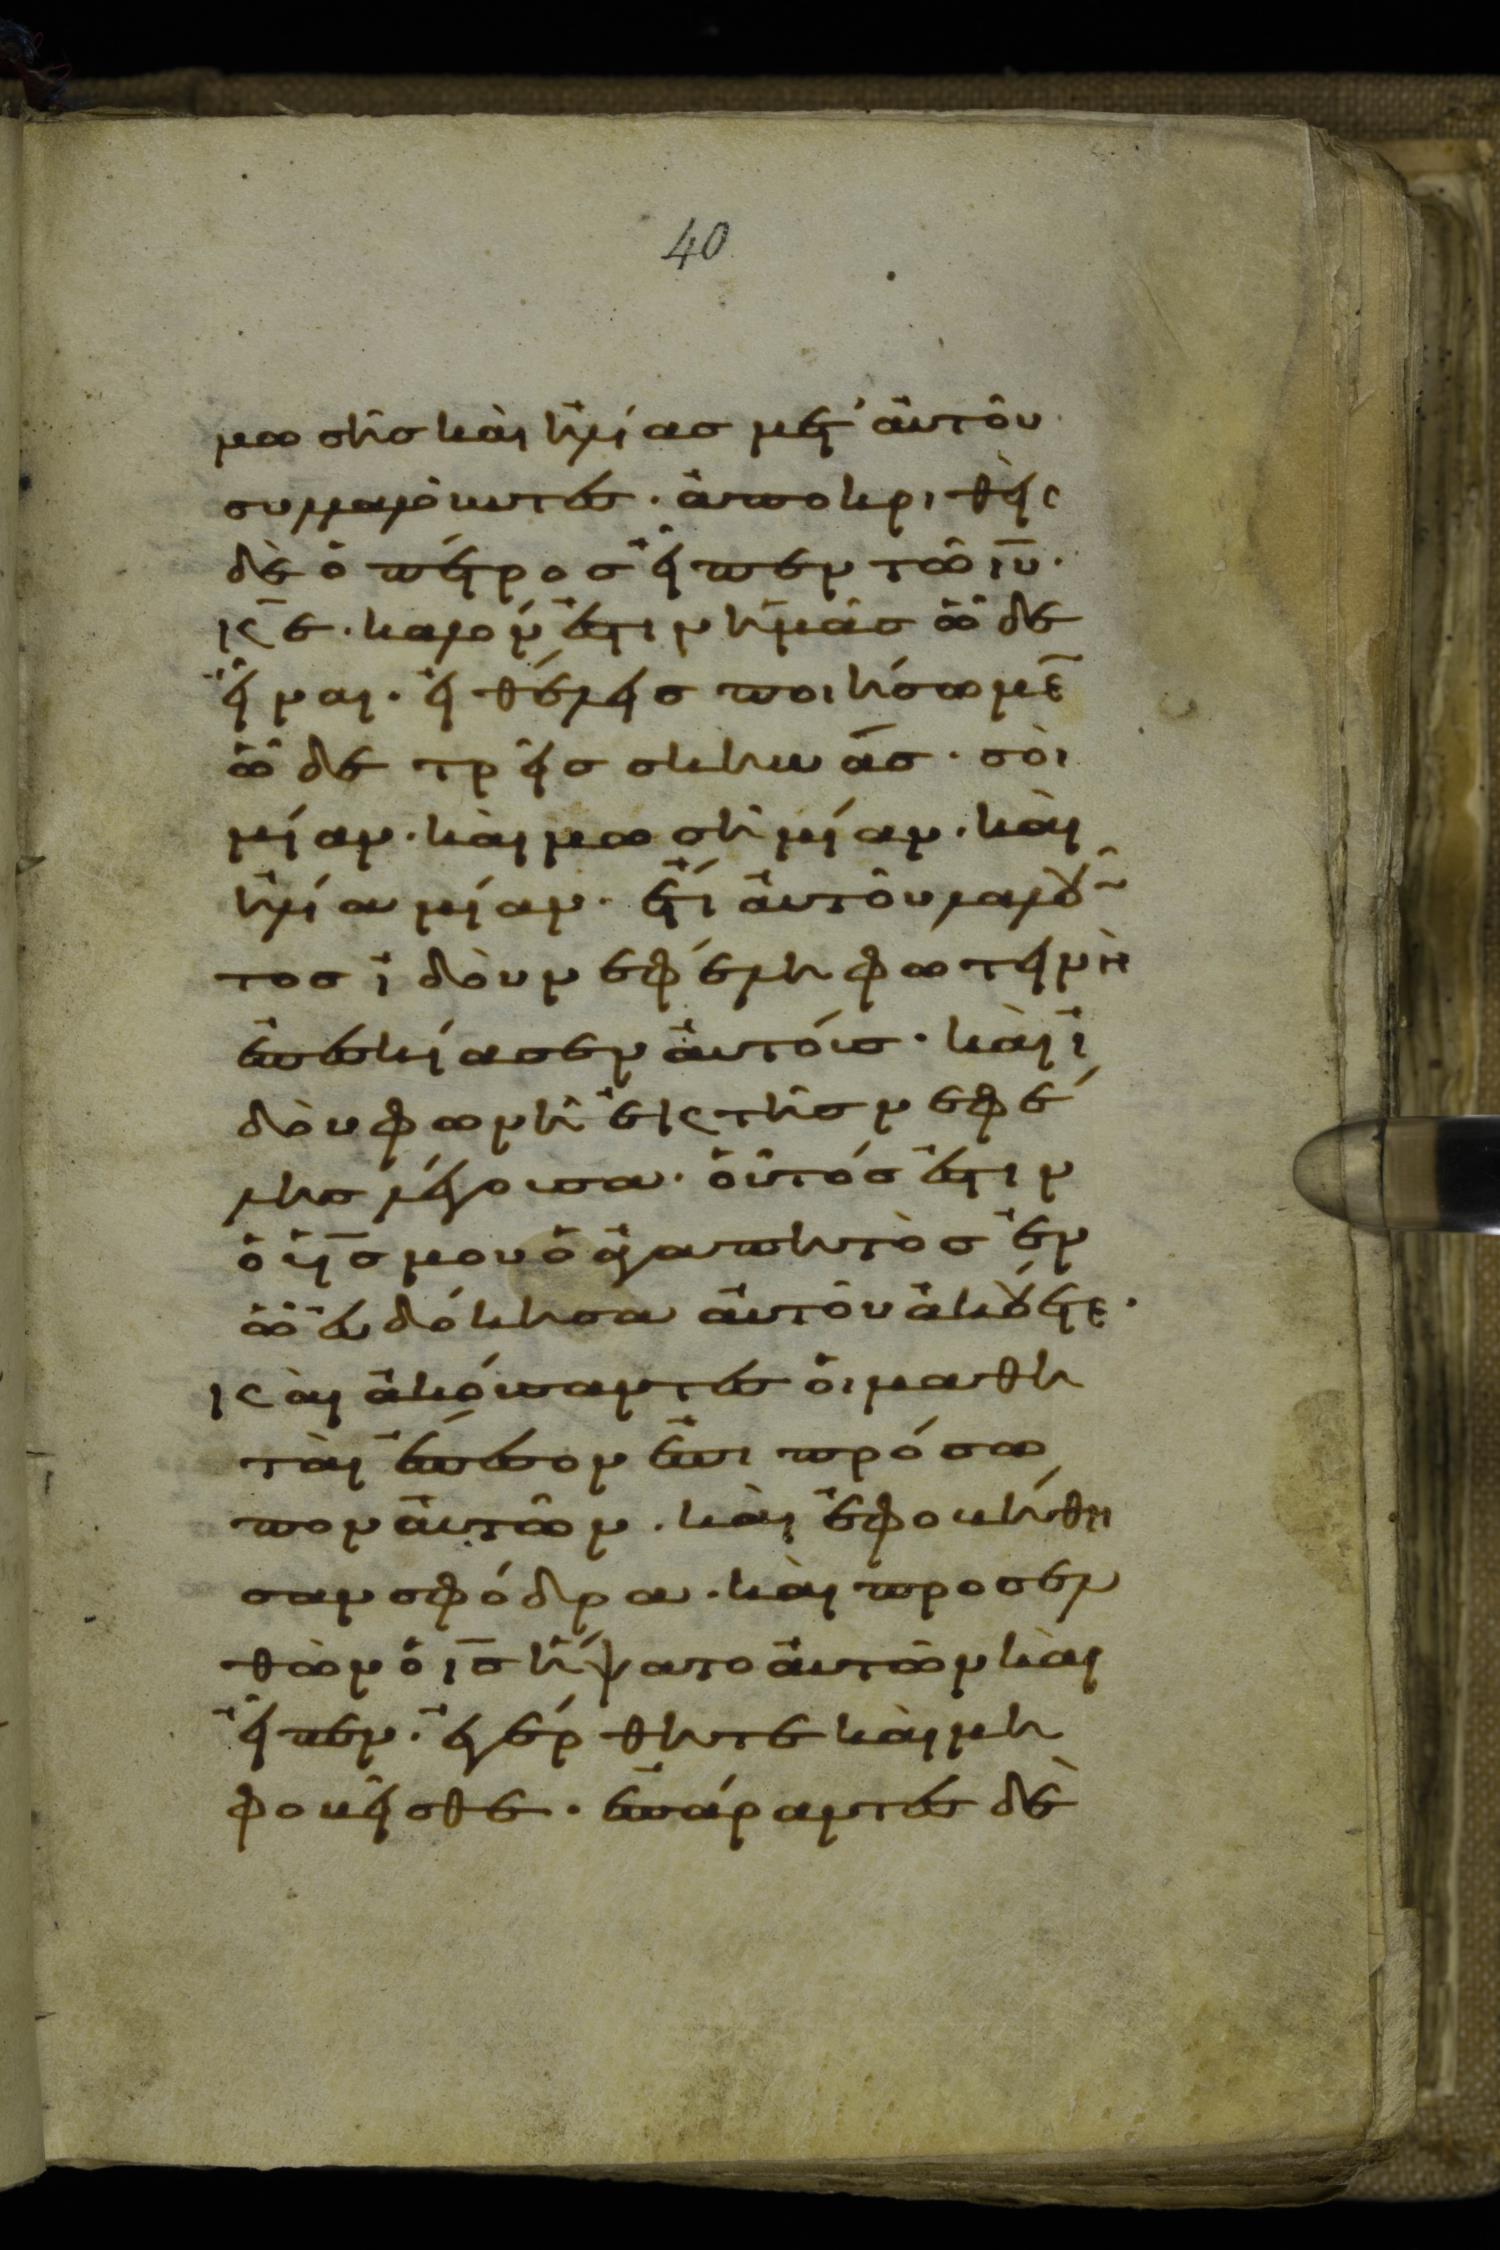 40
μωσῆσ καὶ ἡλίασ μετ' ἀυτοῦ
συλλαλοῦντεσ. ἀποκριθεὶς
δὲ ὁ πέτροσ εἶπεν τῶ ιυ̅.
κ̅ε. καλόν ἐστιν ἡμᾶσ ὧδε
εἶναι. εἰ θέλεισ ποιήσωμε̅
ὧδε τρεῖσ σκηνάσ. σοὶ
μίαν. καὶ μωσῆ μίαν. καὶ
ἡλία μίαν. ἔτι ἀυτοῦ λαλοῦ̅
τοσ ἰδοὺ νεφέλη φωτεινὴ
ἐπεσκίασεν ἀυτόισ. καὶ ἰ
δοὺ φωνὴ ἐκ τῆσ νεφέ
λησ λέγουσα. οὗτόσ ἐστιν
ὁ υι̅σ μου ὁ ἀγαπητὸσ ἐν
ὧ ἐυδόκησα ἀυτοῦ ἀκούετε.
καὶ ἀκούσαντεσ ὁι μαθη
ταὶ ἔπεσον ἐπι πρόσω
πον ἀυτῶν. καὶ ἐφοβήθη
σαν σφόδρα. καὶ προσελ
θὼν ὁ ι̅σ ἥψατο ἀυτῶν καὶ
εἶπεν. ἐγέρθητε καὶ μη
φοβεῖσθε. ἐπάραντεσ δὲ